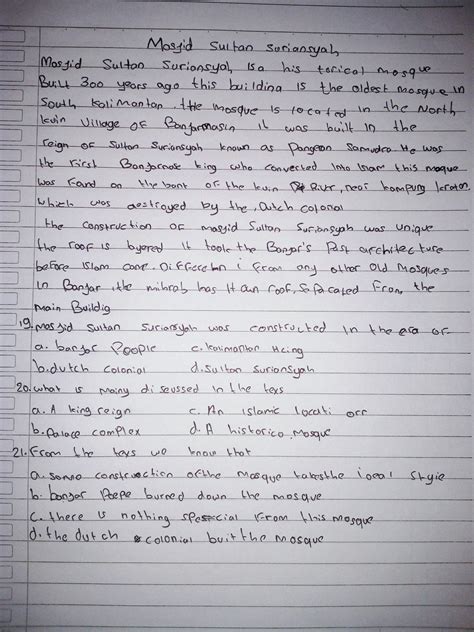 Masjid Sultan Suriansyah
Masjid Sultan Suriansyah Is a his torical mosque
Built 300 years ago this building Is the oldest mosque In
South Kalimantan. the Mosque Is located In the North
kuin Village of Banjarmasin It was built In the
reign of Sultan Suriansyah known as Pangeran Samudra. He was
the First Banjarnese king who converted Into Islam this moque
was Faund on the bank of the kuin River, near kampung kraton,
which was aestroyed by the Dutch colonial
the construction of masjid Sultan Suriansyah was unique
the roof is layered It took the Banjar's Past architecture
before Islam came. Differe from any other Old Mosques
In Banjar, the mihrab has It own roof, Sefarated From the
Main Buildig
19. masjid Sultan Suriansyah was constructed In the era of
a. banjar People c. kalimantan Hcing
b. dutch colonial d. Sultan Suriansyah
20. what Is mainy discussed In the texs
a. A king reign c. An Islamic locati off
b. Palace complex d. A historico Mosque
21. From the texs we know that
a. some construection ofthe mosque takesthe local style
b. banjar Peepe burned down the mosque
c. there Is nothing special From this mosque
d. the dutch colonial buitthe mosque